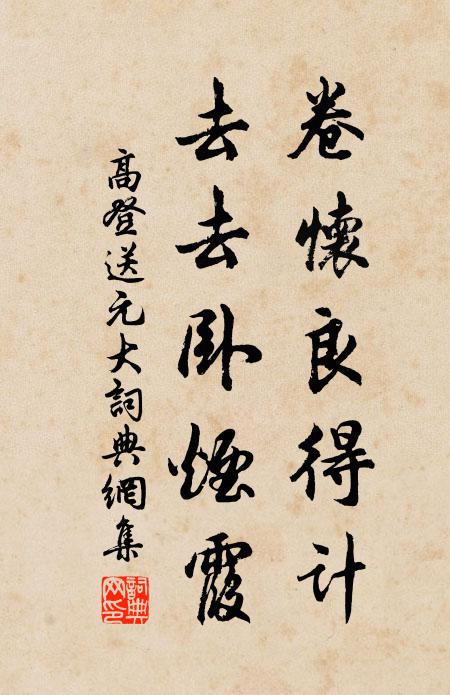 卷懷良得計
去去卧煙霞
高登送元大詞典網集
詞典網印